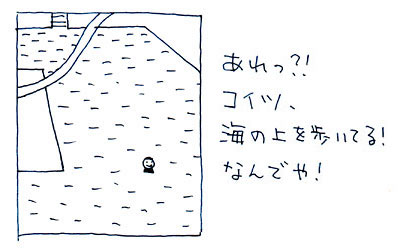 あれっ?!
コイツ、
海の上を歩いてる!
なんでや!